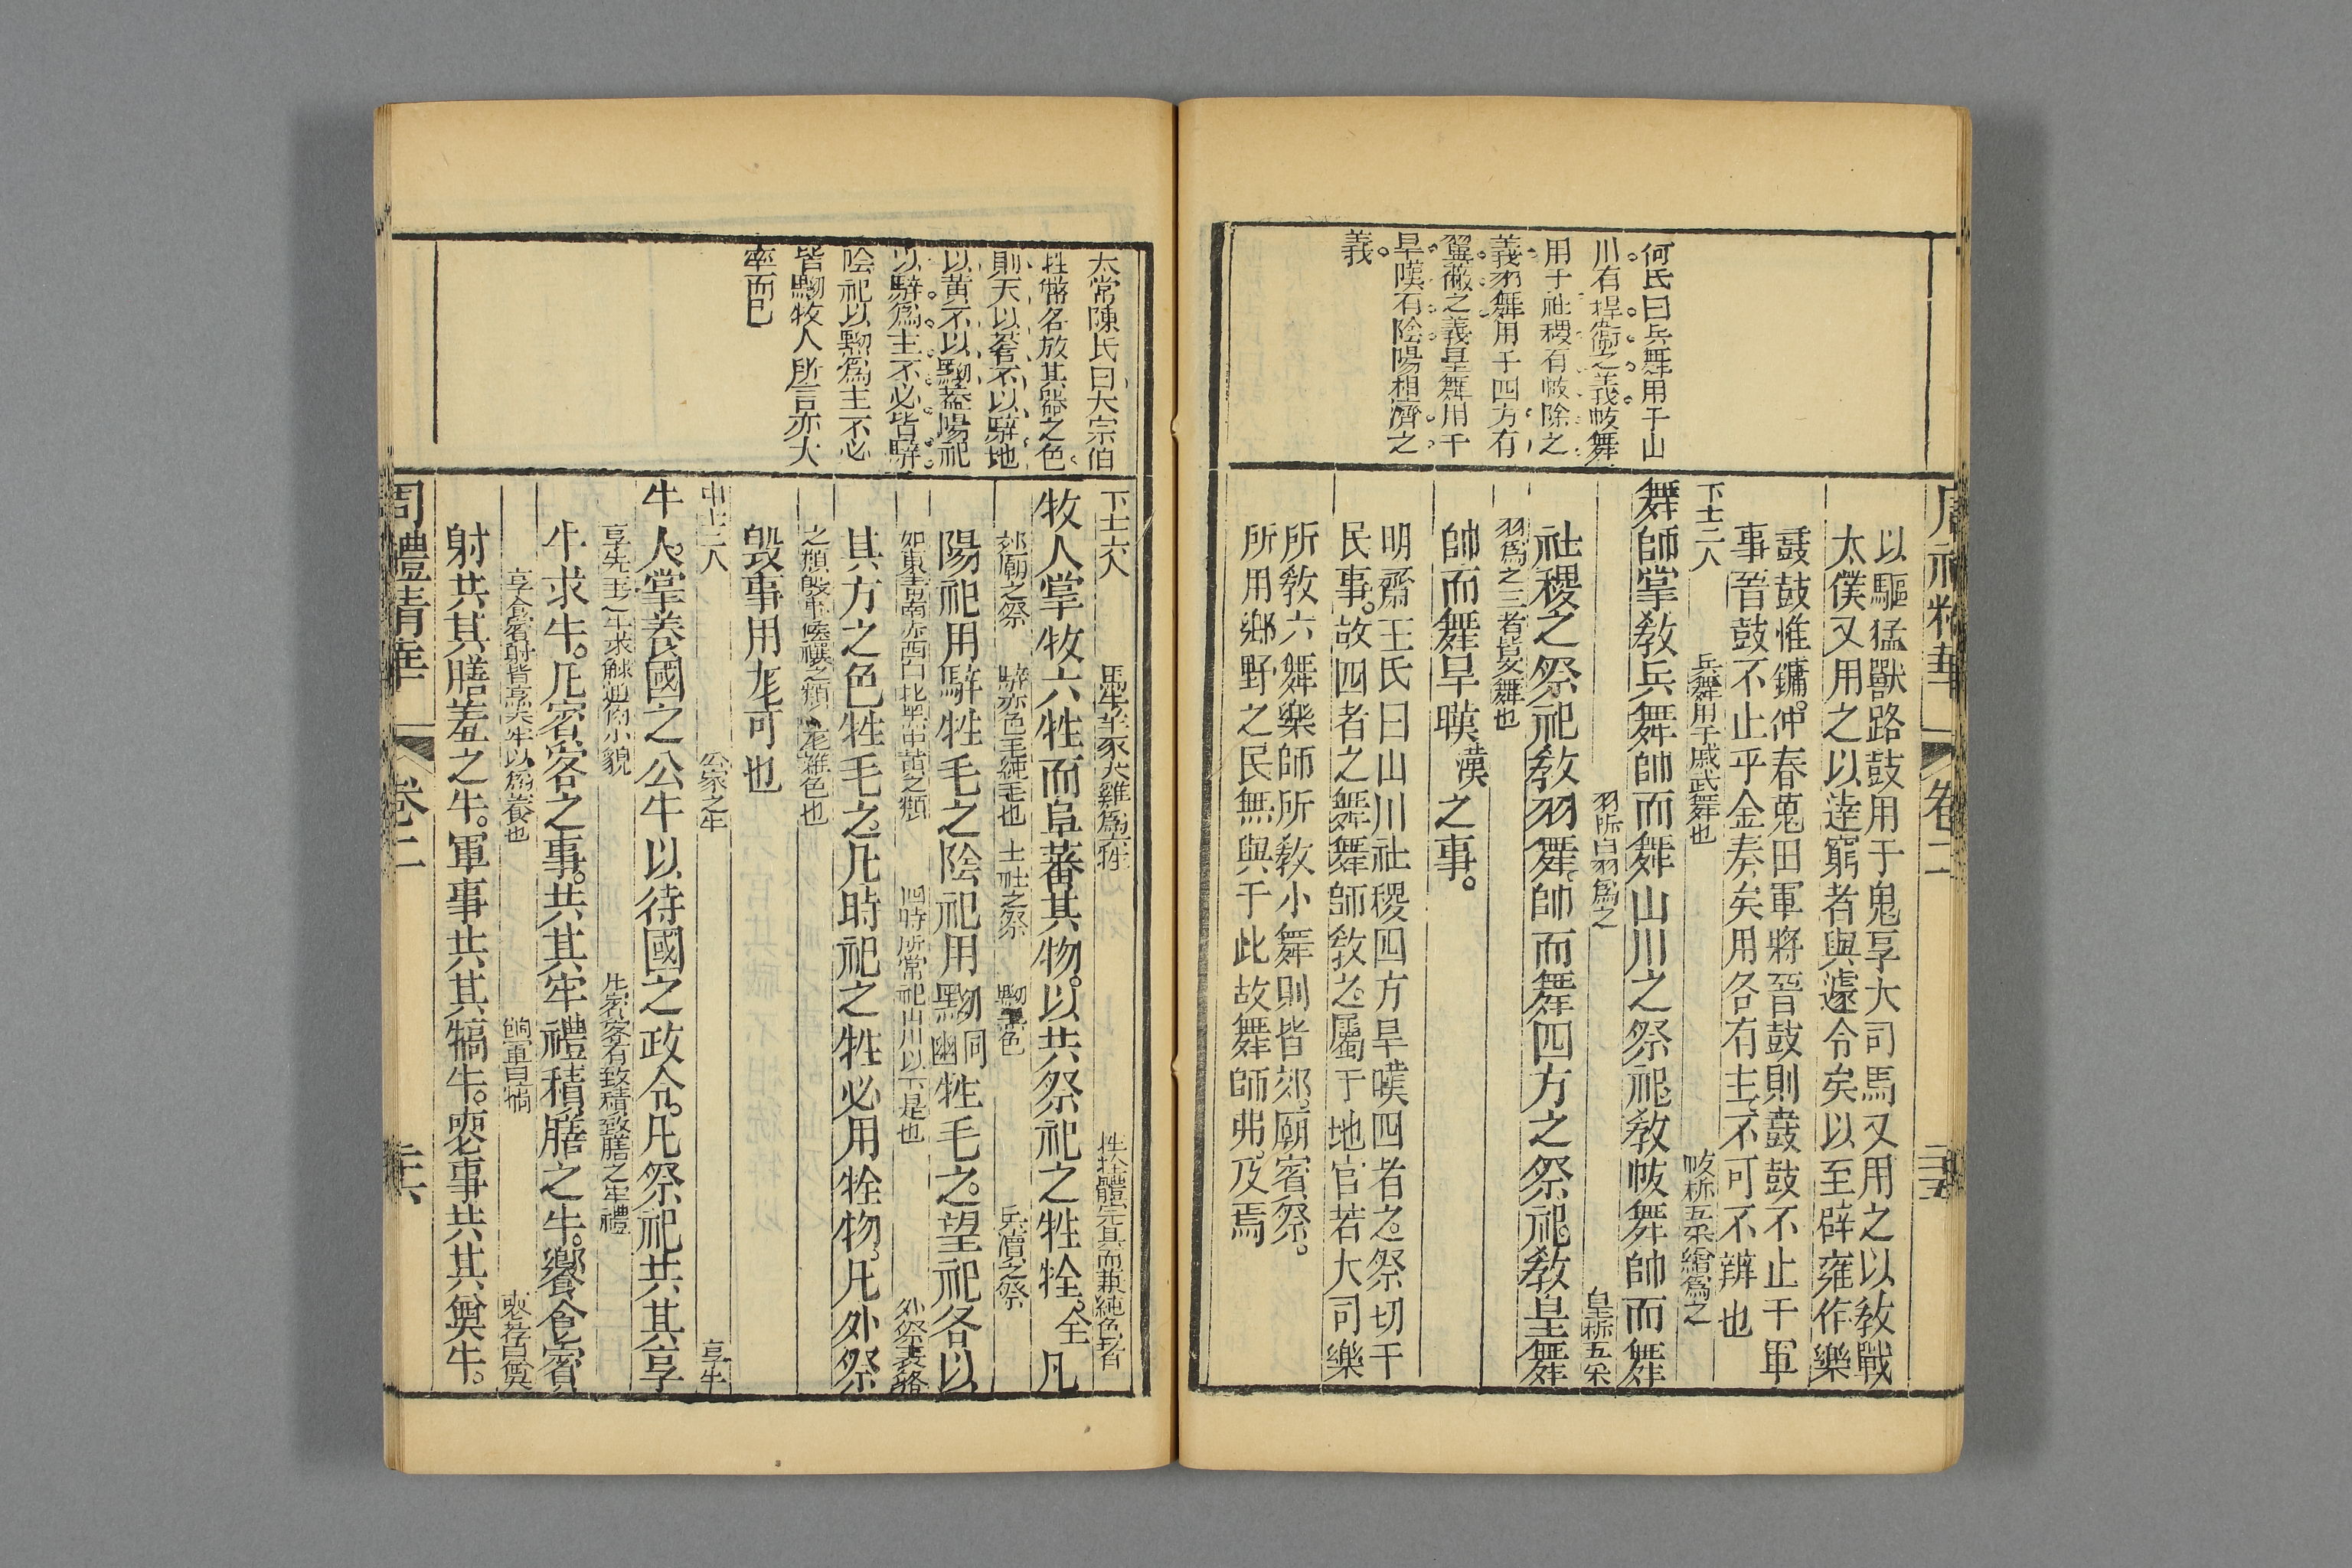 何氏曰兵舞用于山
川有捍衛之義帗舞
用于社稷有帗除之
義羽舞用于四方有
翼蔽之義皇舞用于
旱暵有陰陽相濟之
義
周禮精華
卷二
以驅猛獸路鼓用于鬼享大司馬又用之以敎戰
太僕又用之以逹窮者與遽令矣以至辟雍作樂
鼖鼓惟鏞仲春蒐田軍將晉鼓則鼖鼓不止于軍
事晉鼓不止乎金奏矣用各有主不可不辨也
下士二人 兵舞用于戚武舞也 帗析五采繒爲之
舞師掌敎兵舞帥而舞山川之祭祀敎帗舞帥而舞
羽析白羽爲之 皇析五采
社稷之祭祀敎羽舞帥而舞四方之祭祀敎皇舞
羽爲之三者皆文舞也
帥而舞旱暵漢之事。
明齋王氏曰山川社稷四方旱暵四者之祭切于
民事。故四者之舞舞師敎之屬于地官若大司樂
所敎六舞樂師所敎小舞則皆郊廟賓祭。
所用鄉野之民無與于此故舞師弗及焉
太常陳氏曰大宗伯
牲幣各放其器之色
則天以蒼不以騂地
以黃不以黝蓋陽祀
以騂爲主不必皆騂
陰祀以黝爲主不必
皆黝牧人所言亦大
率而已
下士六人 馬牛羊豕犬雞爲六牲 牷體完具而兼純色者
牧人掌牧六牲而阜蕃其物。以共祭祀之牲牷全凡
郊廟之祭 騂赤色毛純毛也 土社之祭 黝黑色 兵價之祭
陽祀用騂牲毛之陰祀用黝幽同牲毛之。望祀各以
如東青南赤西白北黑中黃之類 四時所常祀山川以下是也 外祭表貉
其方之色牲毛之。凡時祀之牲必用牷物。凡外祭
之類毀事候禳之類尨雜色也
毀事用尨可也
中士二人 公家之牛 享牛
牛人掌養國之公牛以待國之政令。凡祭祀共其享
享先王之牛求觩通角小貌 牛賓客有致積致膳之牢禮
牛求牛。凡賓客之事。共其牢禮積膳之牛。饗食賓
享食賓射皆烹大牢以爲養也 餉軍曰犒 喪荐曰奠
射共其膳羞之牛。軍事共其犒牛。喪事共其奠牛。
周禮精華
卷二